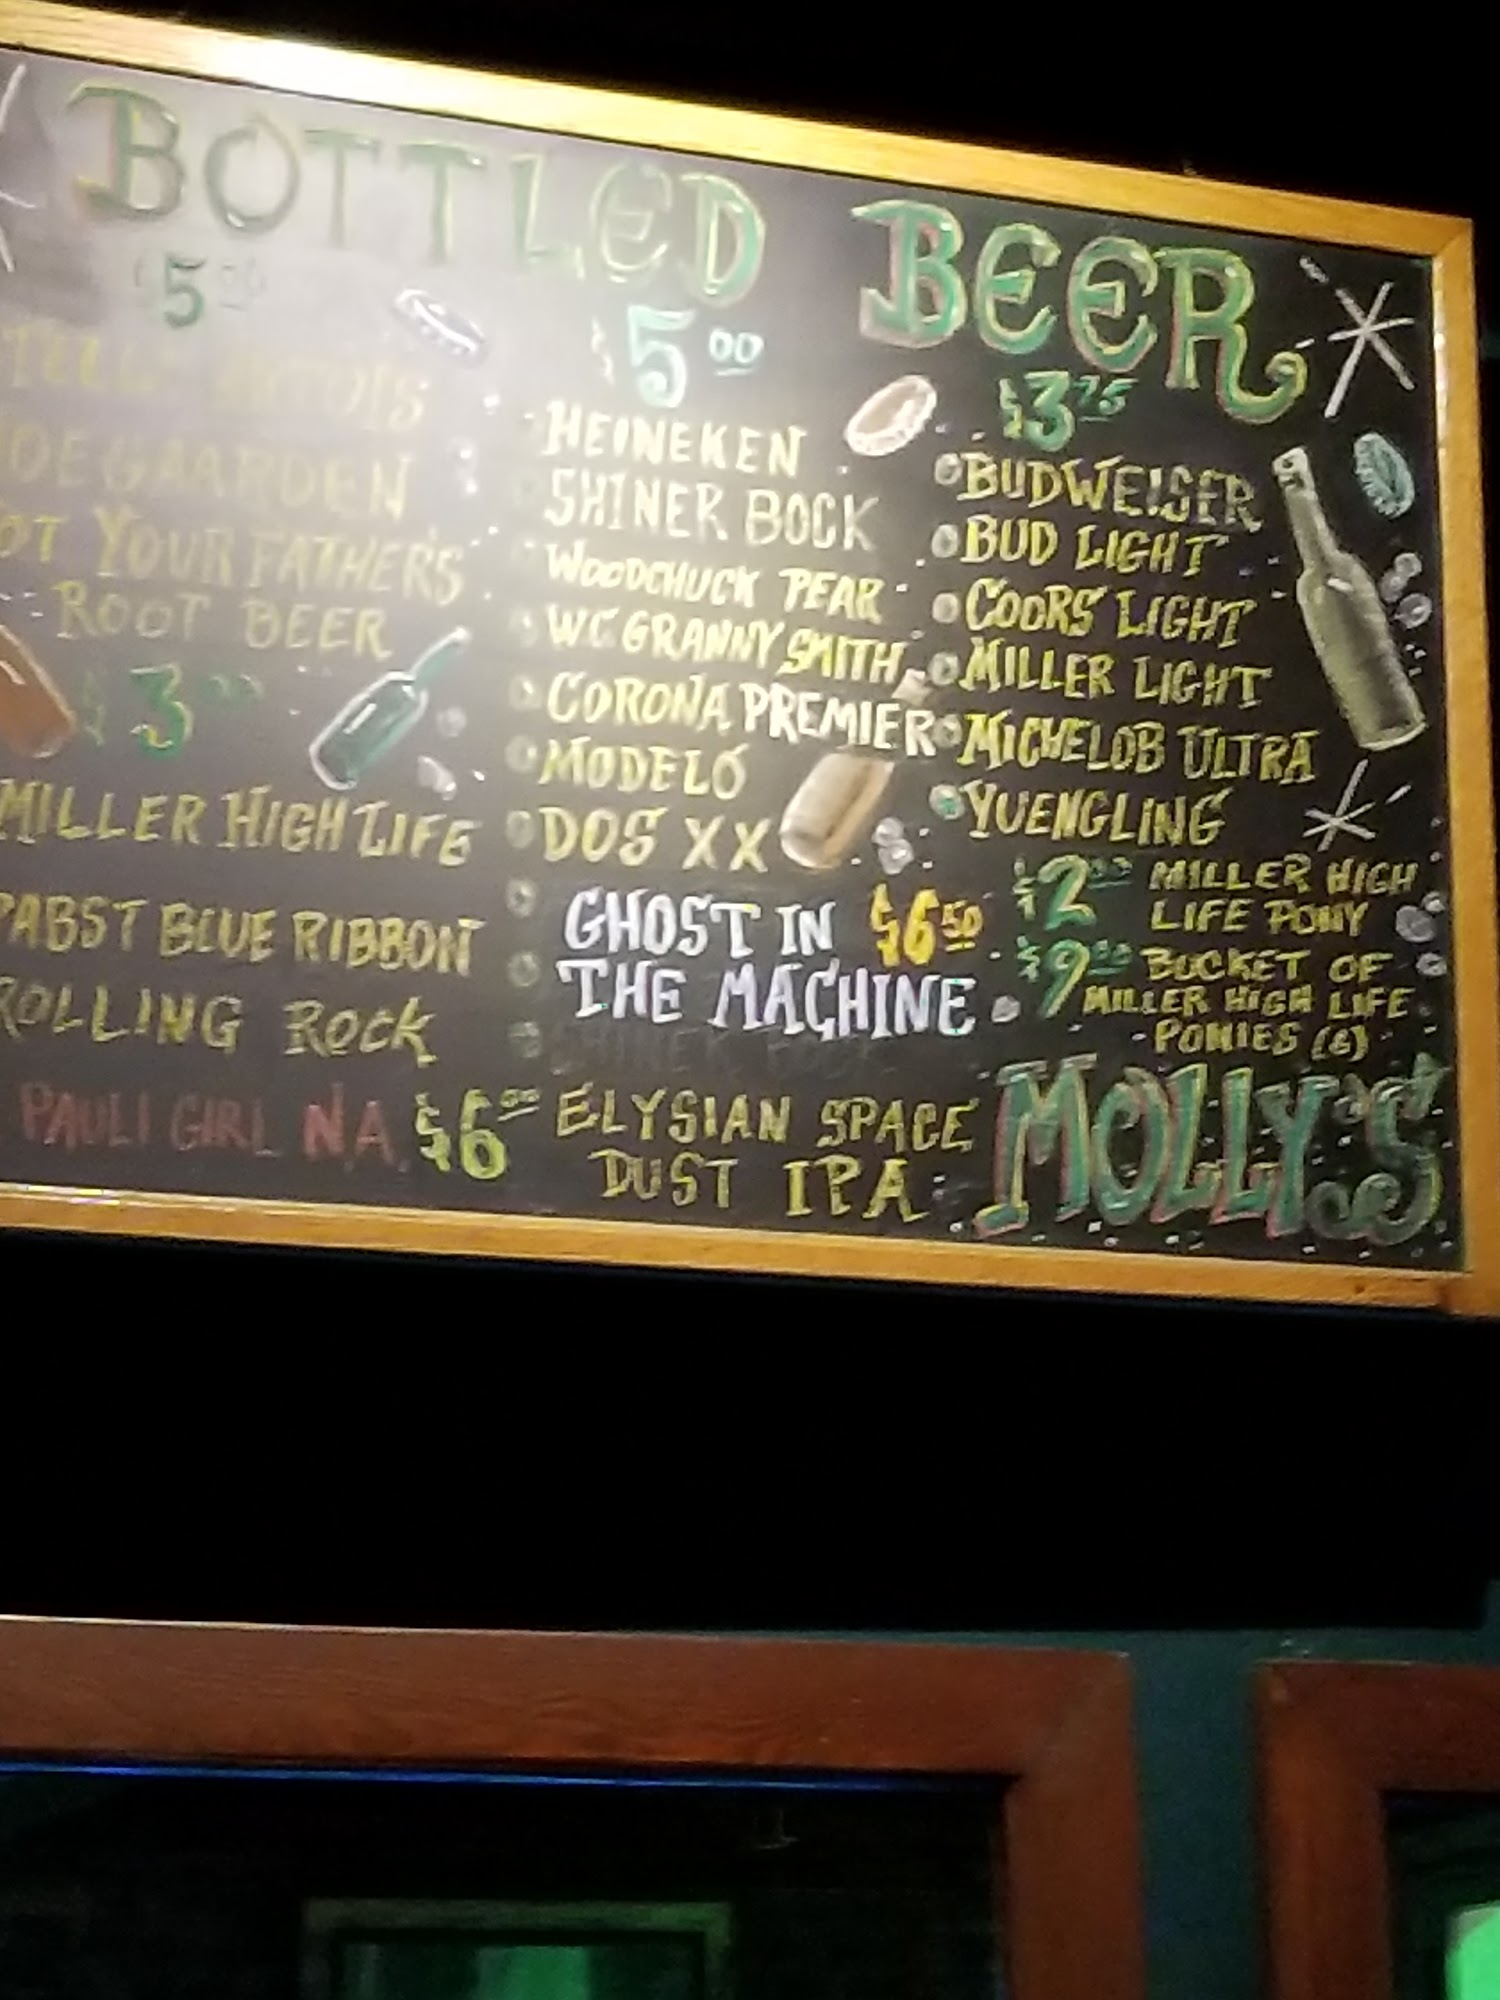 BOTTLED BEER
$5.00
ARTOIS
YOUR FATHER'S
ROOT BEER
$3.00
MILLER HIGH LIFE
PABST BLUE RIBBON
ROLLING ROCK
PAULI GIRL N.A.
$5.00
HEINEKEN
SHINER BOCK
WOODCHUCK PEAR
WC GRANNY SMITH
CORONA PREMIER
MODELO
DOS XX
GHOST IN $6.50
THE MACHINE
$6.00 ELYSIAN SPACE
DUST IPA
$3.75
BUDWEISER
BUD LIGHT
COORS LIGHT
MILLER LIGHT
MICHELOB ULTRA
YUENGLING
$2.00 MILLER HIGH
LIFE PONY
$9.00 BUCKET OF
MILLER HIGH LIFE
PONIES (6)
MOLLY'S